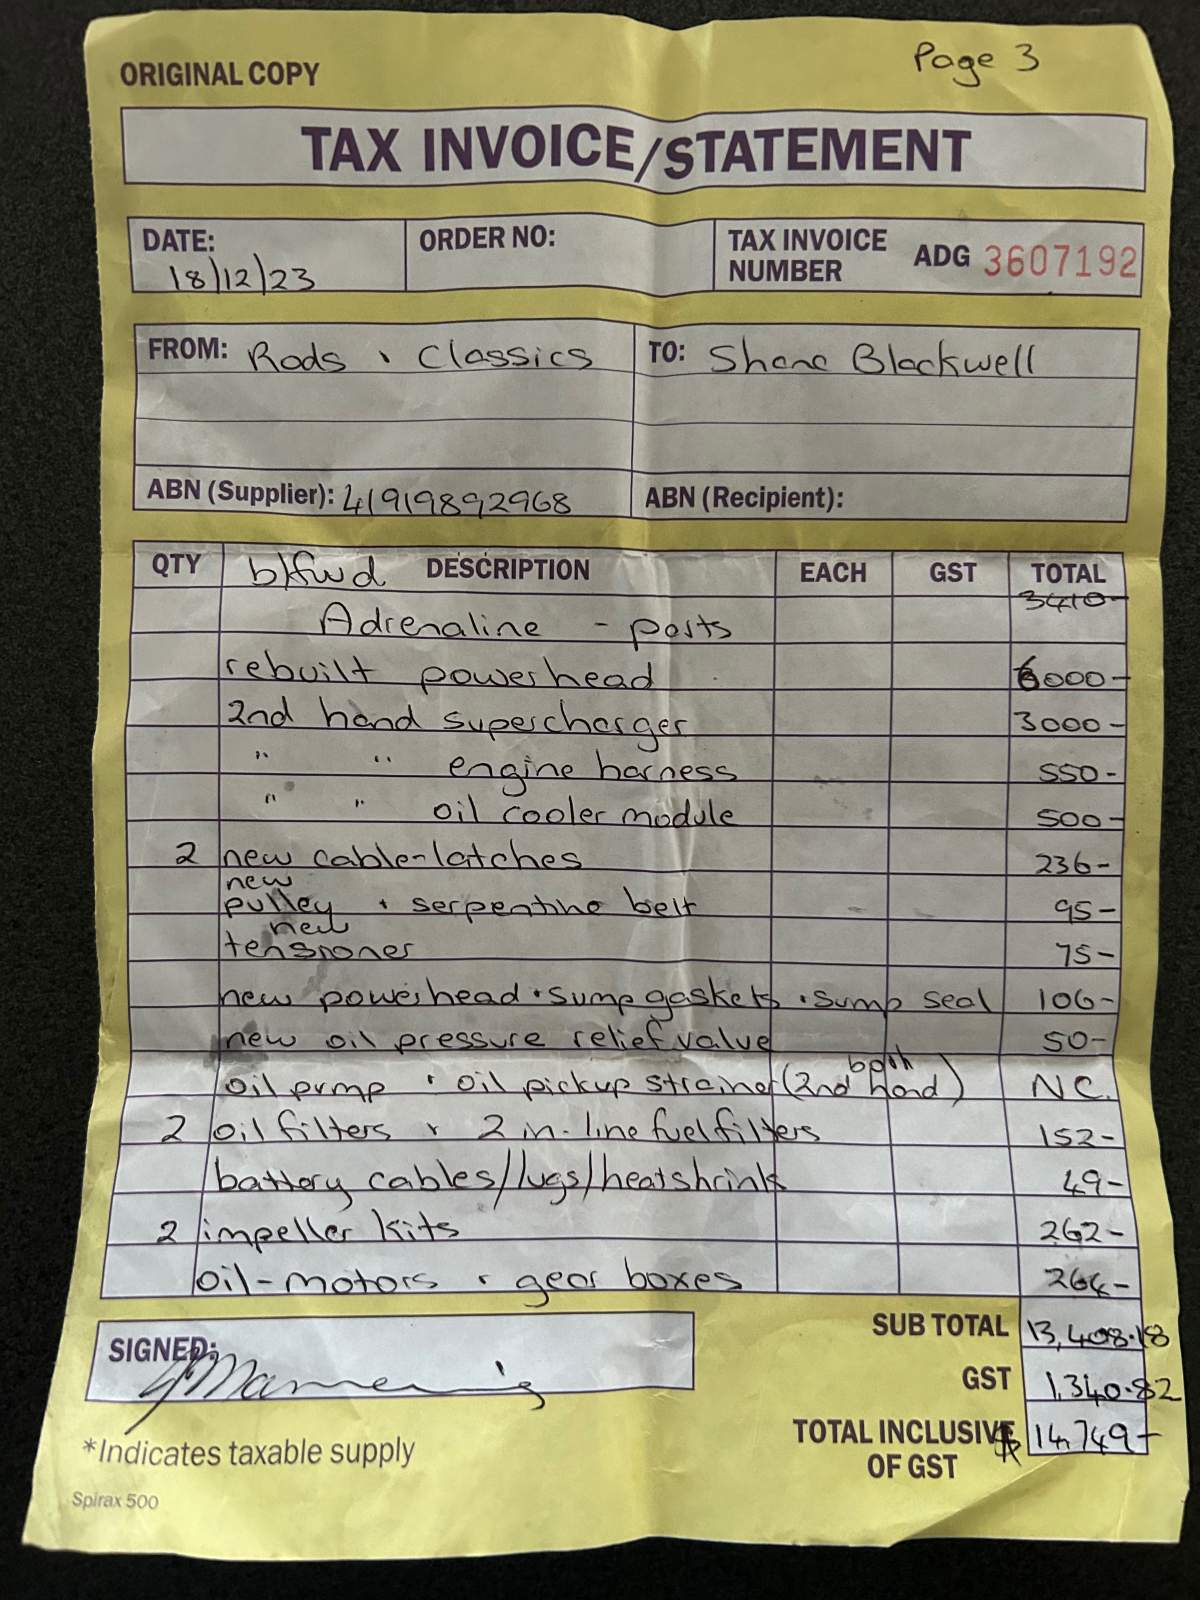 Page 3
ORIGINAL COPY
TAX INVOICE/STATEMENT
DATE: 18/12/23
ORDER NO:
TAX INVOICE NUMBER ADG 3607192
FROM: Rods + Classics
TO: Shane Blackwell
ABN (Supplier): 41919892968
ABN (Recipient):
QTY b/fwd DESCRIPTION EACH GST TOTAL
3410-
Adrenaline - parts
rebuilt powerhead 6000-
2nd hand supercharger 3000-
" " engine harness 550-
" " oil cooler module 500-
2 new cable-latches 236-
new
pulley + serpentine belt 95-
new
tensioner 75-
new powerhead + sump gaskets + sump seal 106-
new oil pressure relief valve 50-
oil pump + oil pickup strainer (both 2nd hand) NC.
2 oil filters + 2 in-line fuel filters 152-
battery cables/lugs/heatshrink 49-
2 impeller kits 262-
oil-motors + gear boxes 264-
SUB TOTAL 13,408.18
SIGNED:
GST 1,340.82
TOTAL INCLUSIVE OF GST $14,749-
*Indicates taxable supply
Spirax 500